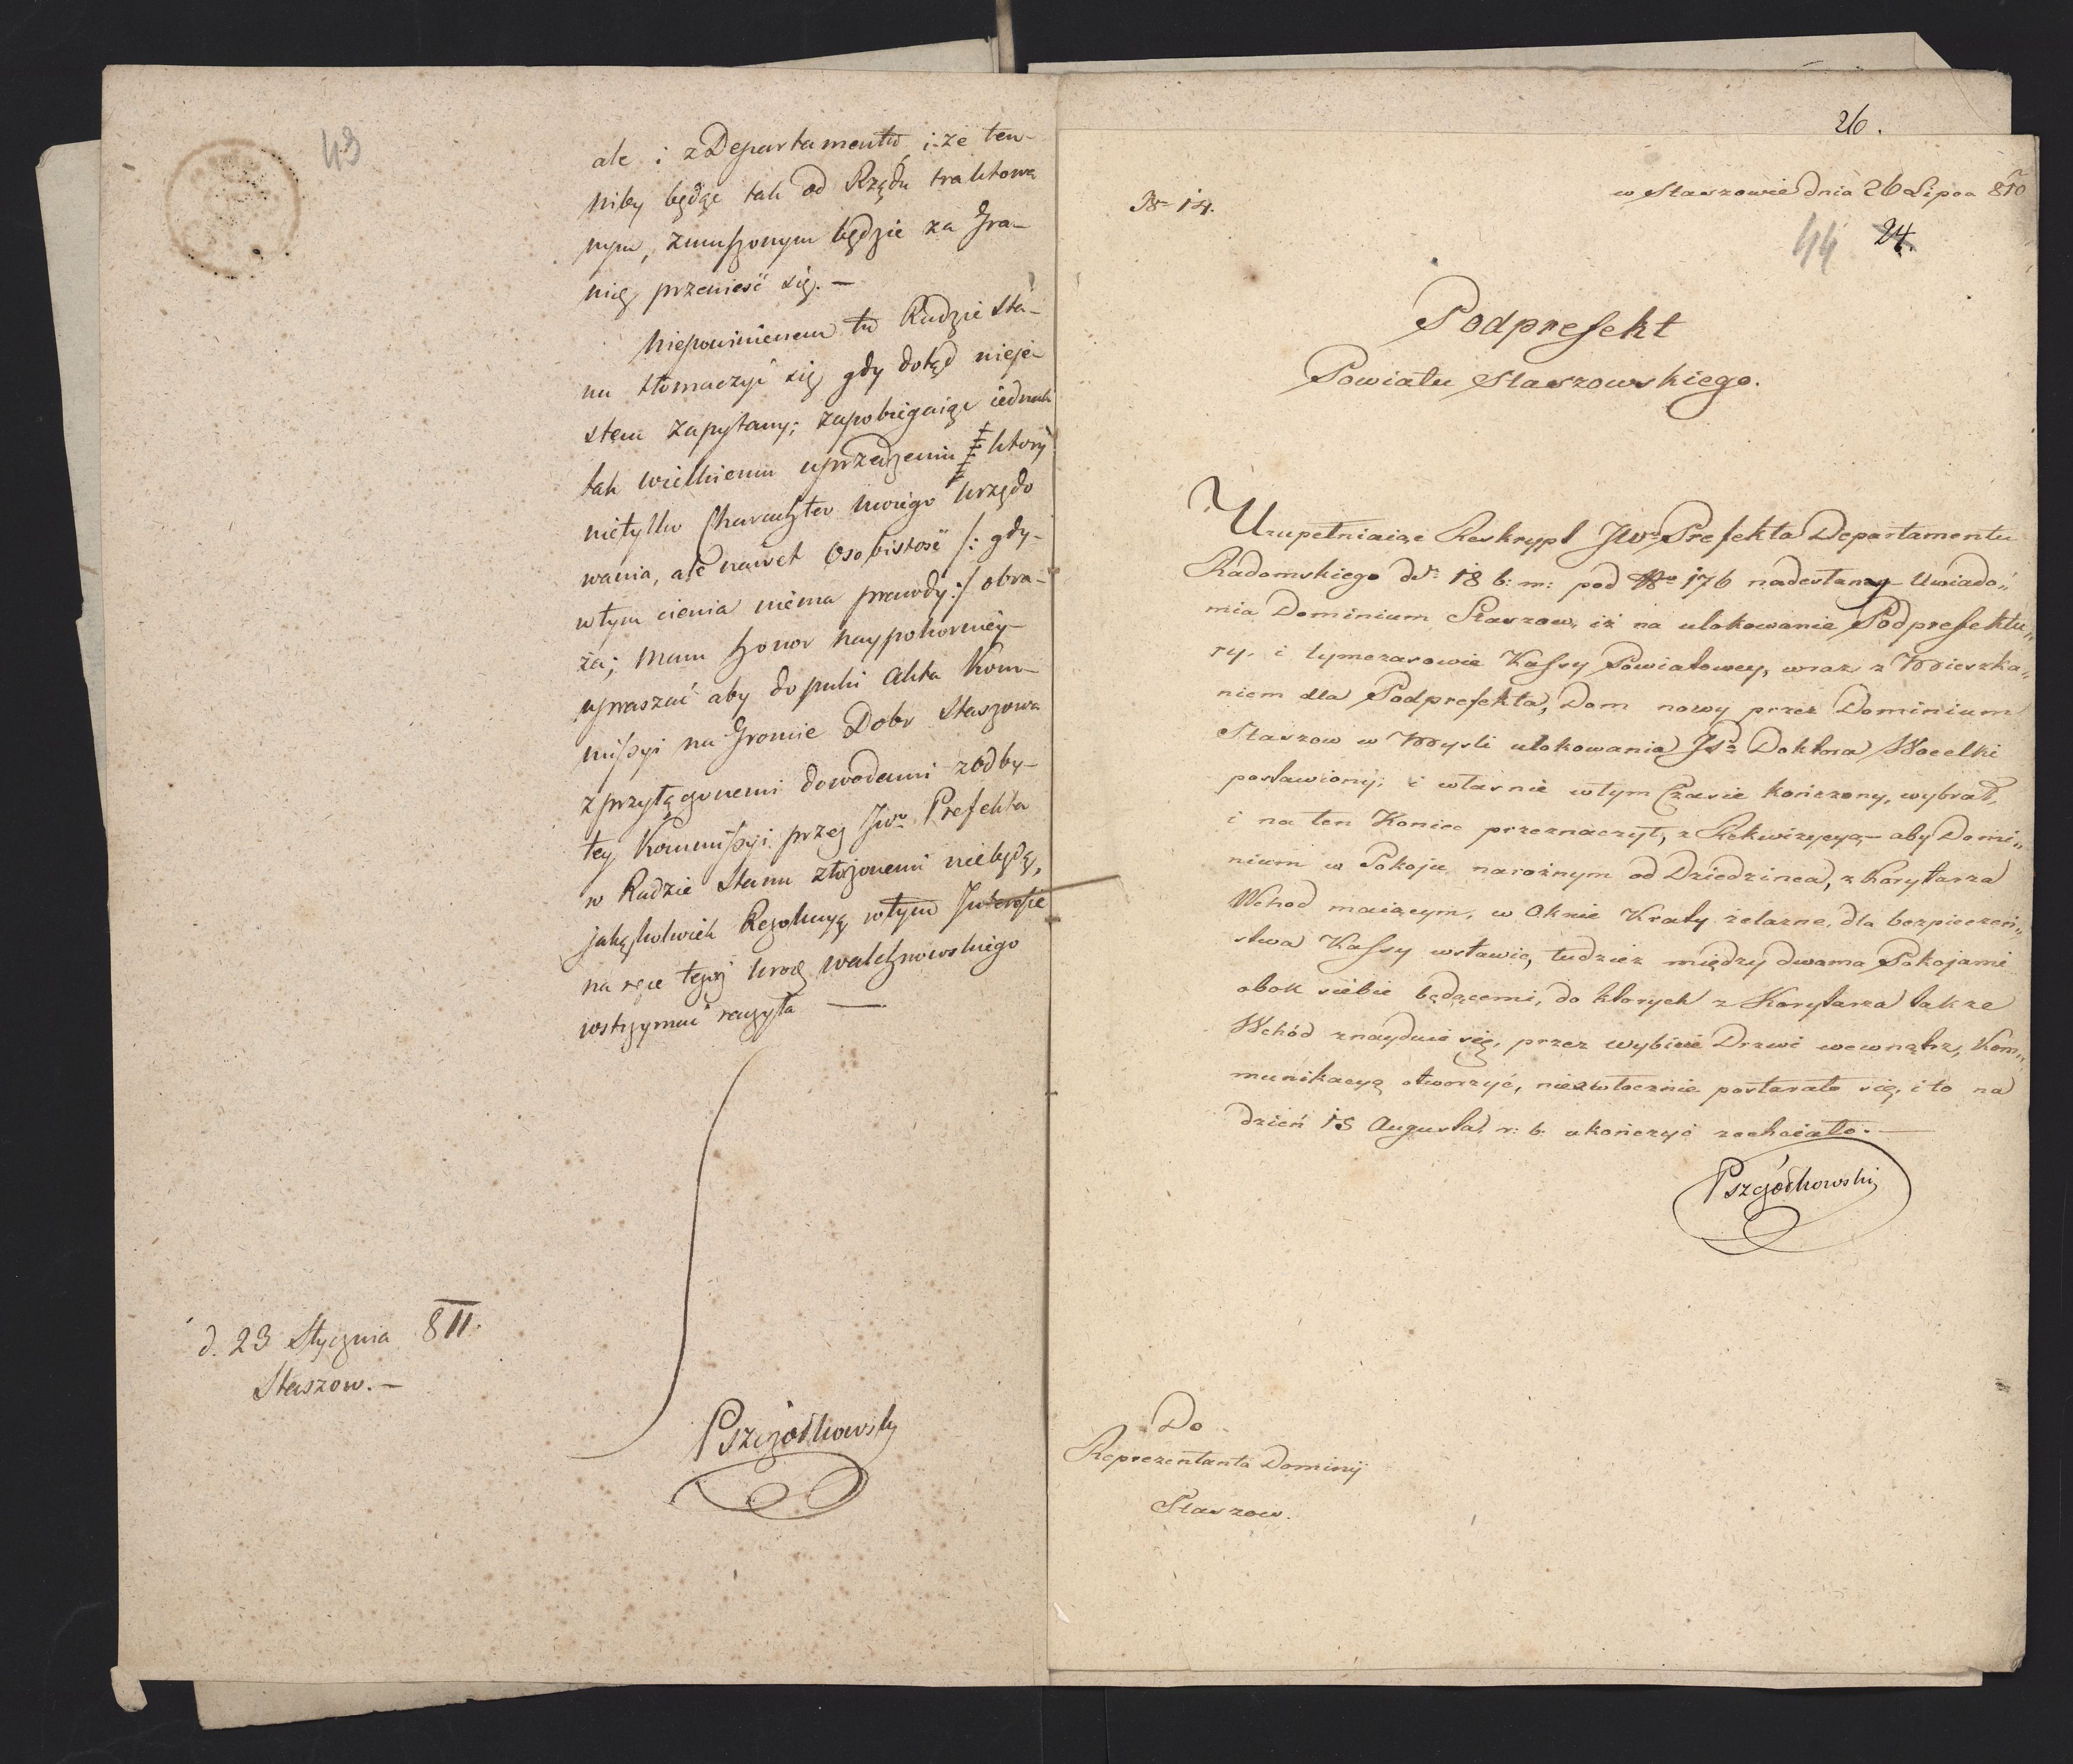 43
ale i z Departamentu i że ten-
niby będąc tak od Rządu traktowa
nym, zmuszonym będzie za Gra-
nicę przenieść się. —
Niepowinienem tu Radzie Sta-
nu tłomaczyć się gdy dotąd nieje-
stem zapytany; zapobiegaiąc iednak
tak wielkiemu uprzedzeniu które
nietylko Charackter moiego Urzędo
wania, ale nawet Osobistość /: gdy-
w tym cienia niema prawdy :/ obra-
ża; mam honor naypokorniéy-
upraszać aby dopuki Akta Kom-
missyi na Gróncie Dobr Staszowa
z przyłączonemi dowodami z odby-
tey Kommissyi przez JWo Prefekta
w Radzie Stanu złożonemi niebędą,
jakąkolwiek Rezolucyą w tym Interessie
na ręce tegoż Uroo Walchnowskiego
wstrzymać raczyła —
d. 23 Stycznia 811.
Staszow. —
Pszczółkowski
26.
No 14.
w Staszowie Dnia 26 Lipca 810
44 24.
Podprefekt
Powiatu Staszowskiego.
Uzupełniaiąc Reskrypt JWo Prefekta Departamentu
Radomskiego dto 18 b: m: pod No 176 nadesłany Uwiado„
mia Dominium Staszow, iż na ulokowanie Podprefektu„
ry, i tymczasowie Kassy Powiatowey, wraz z Mieszka„
niem dla Podprefekta, Dom nowy przez Dominium
Staszow w Mysli ulokowania Doktora Wocelki
postawiony; i własnie w tym Czasie kończony, wybrał,
i na ten Koniec przeznaczył, z Rekwizycyą — aby Domi„
nium w Pokoju narożnym od Dziedzinca, z Korytarza
Wchod maiącym, w Oknie Kraty żelazne, dla bezpieczeń„
stwa Kassy wstawić, tudzież między dwoma Pokojami
obok siebie będącemi, do ktorych z Korytarza także
Wchód znayduie się, przez wybicie Drzwi wewnątrz, Kom„
munikacyą otworzyć, niezwłocznie postarało się, i to na
dzień 15 Augusta r: b: ukończyć zechciało. —
Pszczółkowski
Do
Reprezentanta Dominij
Staszow.